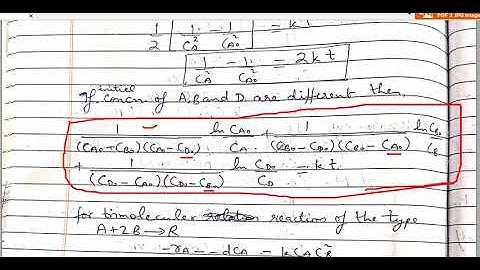 1/2 [1/C_A² - 1/C_A0²] = kt
1/C_A² - 1/C_A0² = 2kt
If initial concn of A, B and D are different then,
1/((C_A0+C_B0)(C_A0-C_D0)) ln C_A0/C_A + 1/((C_B0-C_D0)(C_B0-C_A0)) ln C_B0/C_B
+ 1/((C_D0-C_A0)(C_D0-C_B0)) ln C_D0/C_D = kt.
for bimolecular reaction of the type
A+2B→R
-r_A = -dC_A = k C_A C_B²